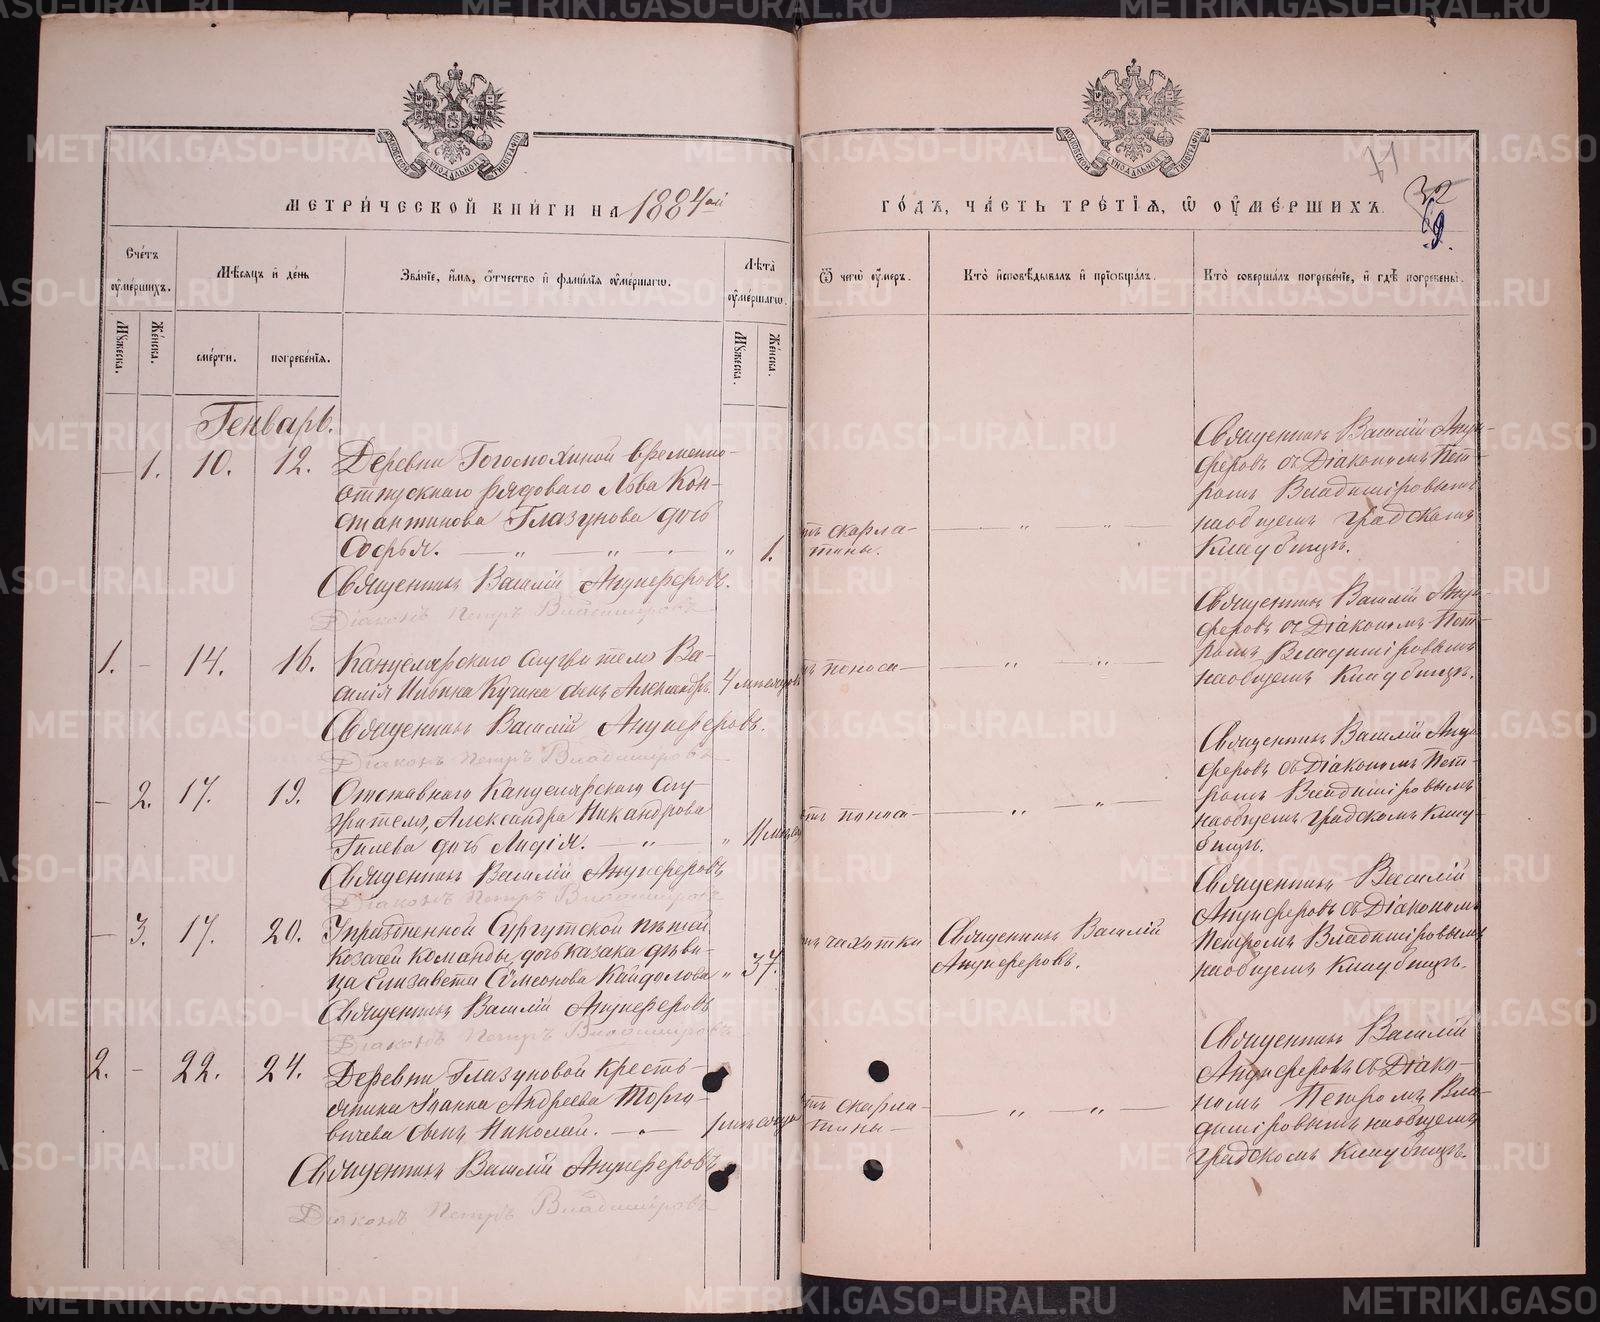 МЕТРИ́ЧЕСКОЙ КНИ́ГИ НА 1884ый
ГО́ДЪ, ЧА́СТЬ ТРЕ́ТІѦ, Ѿ ОУ҆МЕ́РШИХЪ.
71
32
69.
Сче́тъ оу҆ме́ршихъ.
Мꙋ́жеска.
Же́нска.
Мѣ́сѧцъ и҆ де́нь
сме́рти.
погребе́нїѧ.
Зва́нїе, и҆́мѧ, ѻ҆́тчество и҆ фами́лїѧ оу҆ме́ршагѡ.
Лѣ́та оу҆ме́ршагѡ.
Мꙋ́жеска.
Же́нска.
Ѿ чегѡ̀ оу҆́меръ.
Кто̀ и҆сповѣ́дывалъ и҆ прїѡбща́лъ.
Кто̀ соверша́лъ погребе́нїе, и҆ гдѣ̀ погребены̀.
Генварь.
— 1. 10. 12.
Деревни Гогомохиной временно-
отпускнаго рядоваго Льва Кон-
стантинова Глазунова дочь
Софья. — „ — „ — „ 1.
Священникъ Василій Анцыферовъ.
Діаконъ Петръ Владиміровъ
отъ скарла-
тины.
— „ „ —
Священникъ Василій Анцы-
феровъ съ Діакономъ Пет-
ромъ Владиміровымъ
на общемъ градскомъ
кладбищѣ.
1. - 14. 16.
Канцелярскаго служителя Ва-
силія Кучина сынъ Александръ. 4 мѣсяцовъ
Священникъ Василій Анцыферовъ.
Діаконъ Петръ Владиміровъ
отъ поноса —
— „ „ —
Священникъ Василій Анцы-
феровъ съ Діакономъ Пет-
ромъ Владиміровымъ
на общемъ кладбищѣ.
— 2. 17. 19.
Отставнаго Канцелярскаго слу-
жителя, Александра Никандрова
Гилева дочь Лидія. — „ — „ 11 мѣсяц
Священникъ Василій Анцыферовъ
Діаконъ Петръ Владиміровъ
отъ поноса —
— „ — „ —
Священникъ Василій Анцы-
феровъ съ Діакономъ Пет-
ромъ Владиміровымъ
на общемъ градскомъ клад-
бищѣ.
— 3. 17. 20.
Упраздненной Сургутской пѣшей
козачей команды, дочь казака дѣви-
ца Елизавета Симеонова Кайдалова „ 37.
Священникъ Василій Анцыферовъ
Діаконъ Петръ Владиміровъ
отъ чахотки
Священникъ Василій
Анцыферовъ.
Священникъ Василій
Анцыферовъ съ Діакономъ
Петромъ Владиміровымъ
на общемъ кладбищѣ.
2. - 22. 24.
Деревни Глазуновой кресть-
янина Іоанна Андреева
сынъ Николай. — „ — 1 мѣсяца
Священникъ Василій Анцыферовъ
Діаконъ Петръ Владиміровъ
отъ скарла-
тины —
— „ — „ —
Священникъ Василій
Анцыферовъ съ Діако-
номъ Петромъ Вла-
диміровымъ на общемъ
градскомъ кладбищѣ.
METRIKI.GASO-URAL.RU